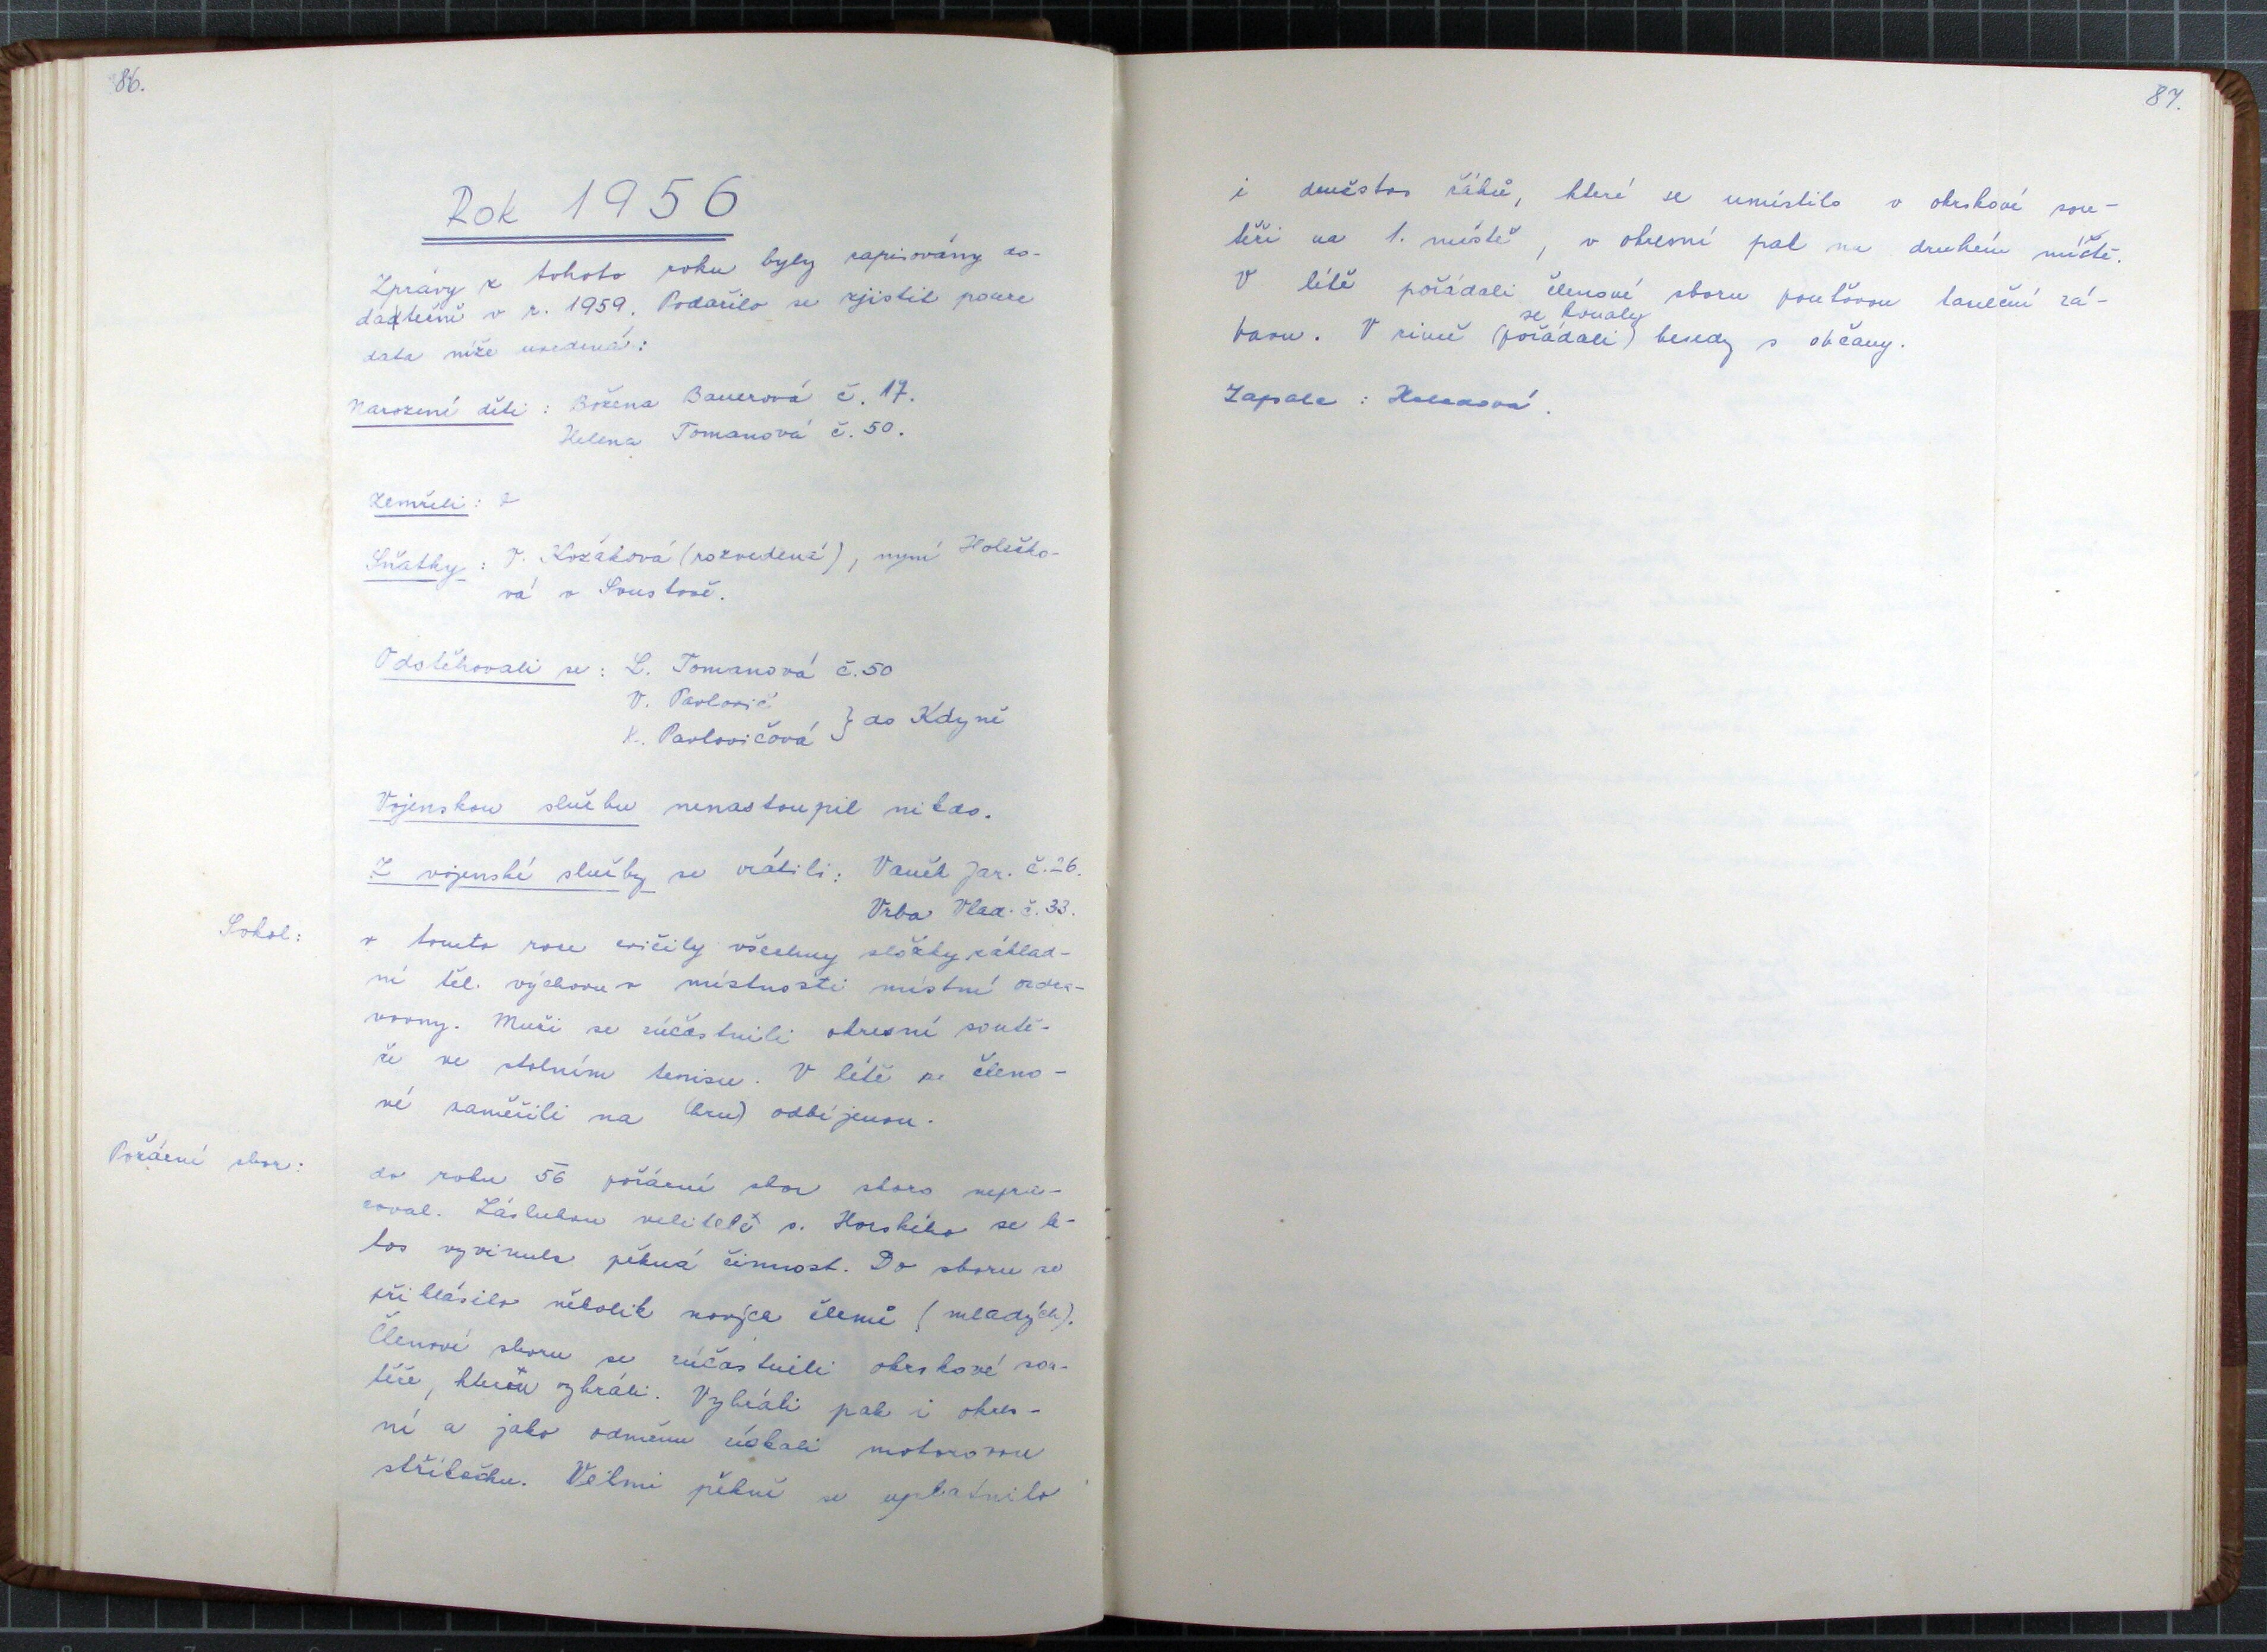 86.
Rok 1956
Zprávy z tohoto roku byly zapisovány do-
datečně v r. 1959. Podařilo se zjistit pouze
data níže uvedená:
Narození dětí: Božena Bauerová č. 17.
Helena Tomanová č. 50.
Zemřeli: 
Sňatky: V. Kozáková (rozvedená), nyní Holečko-
vá v Soustově.
Odstěhovali se: L. Tomanová č. 50
V. Pavlovič
K. Pavlovičová } do Kdyně
Vojenskou službu nenastoupil nikdo.
Z vojenské služby se vrátili: Vaněk Jar. č. 26.
Vrba Vlad. č. 33.
Sokol: v tomto roce cvičily všechny složky základ-
ní těl. výchovu v místnosti místní
vovny. Muži se zúčastnili okresní soutě-
že ve stolním tenisu. V létě se členo-
vé zaměřili na (hru) odbíjenou.
Požární sbor: do roku 56 požární sbor skoro nepra-
coval. Zásluhou velitele s. Horského se le-
tos vyvinula pěkná činnost. Do sboru se
přihlásilo několik nových členů (mladých).
Členové sboru se zúčastnili okrskové sou-
těže, kterou vyhráli. Vyhráli pak i okres-
ní a jako odměnu získali motorovou
stříkačku. Velmi pěkně se uplatnilo
87.
i družstvo žáků, které se umístilo v okrskové sou-
těži na 1. místě, v okresní pak na druhém místě.
V létě pořádali členové sboru pouťovou taneční zá-
se konaly
bavu. V zimě (pořádali) besedy s občany.
Zapsala: